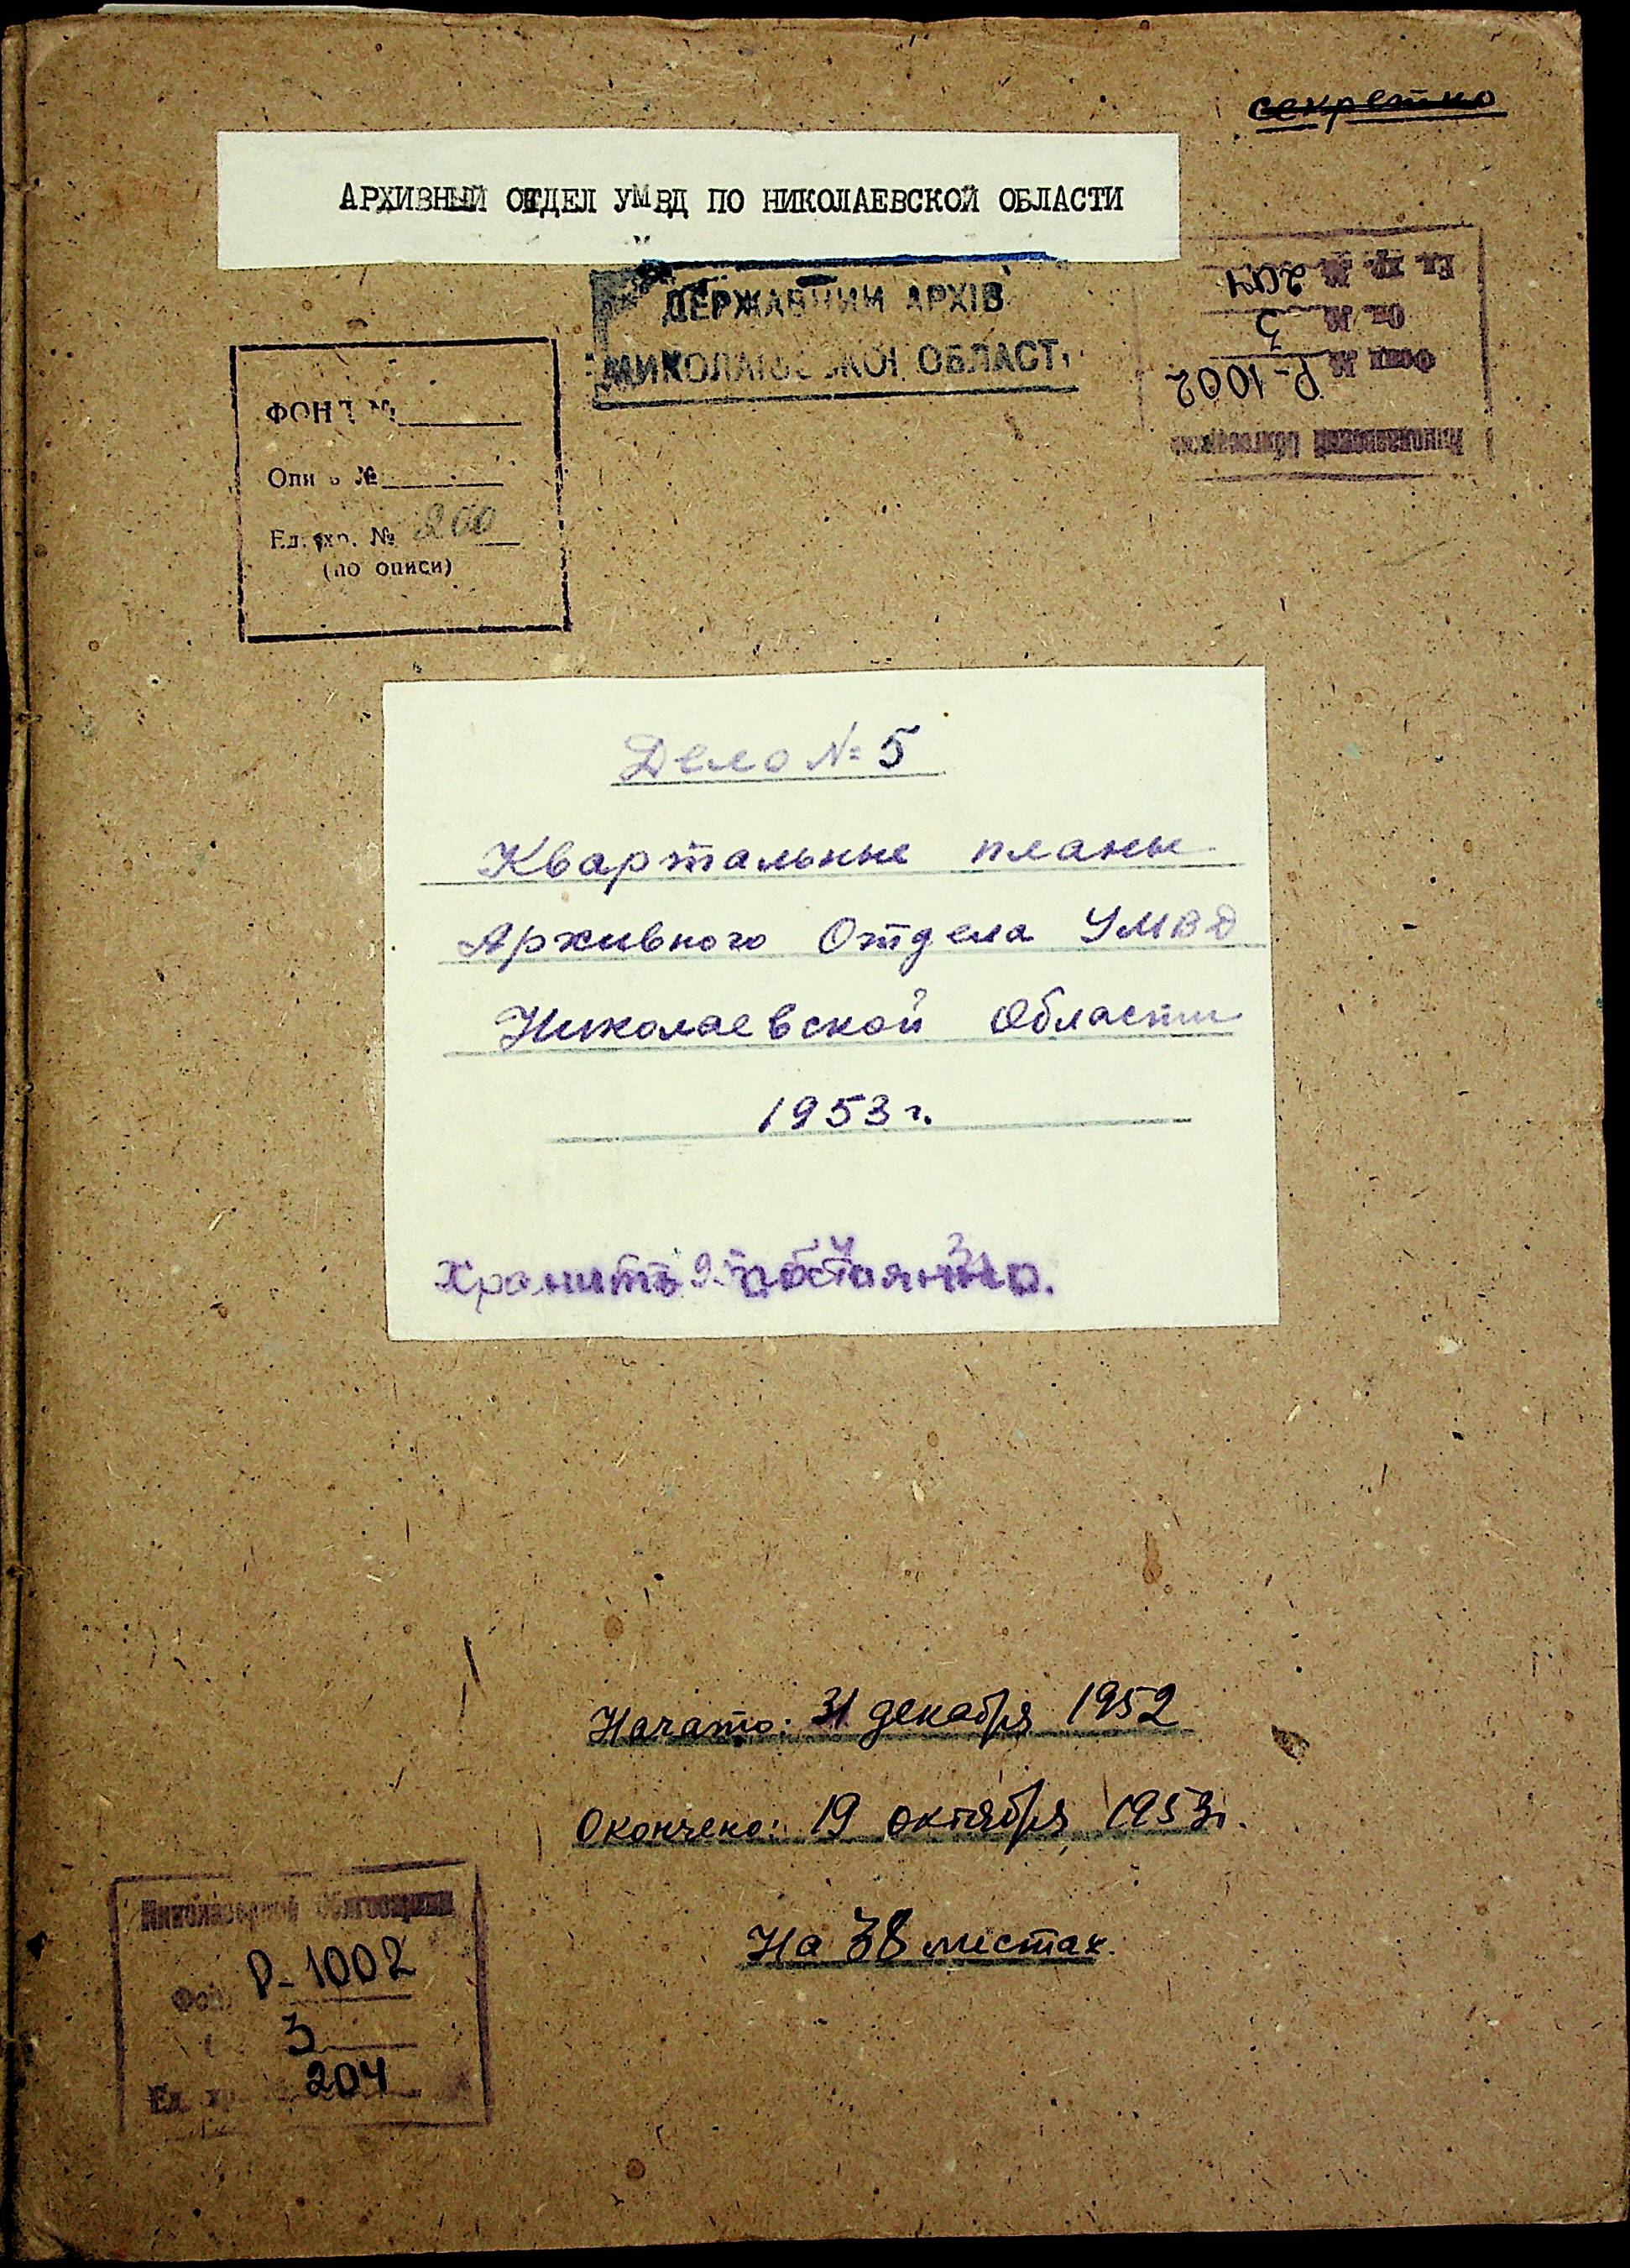 секретно
АРХИВНЫЙ ОТДЕЛ УМВД ПО НИКОЛАЕВСКОЙ ОБЛАСТИ
ДЕРЖАВНИЙ АРХІВ
МИКОЛАЇВСЬКОЇ ОБЛАСТІ
Ед. хр. № 204
Оп. № 3
Фонд № Р-1002
Николаевский облгосархив
ФОНД №
Опись №
Ед. хр. № 200
(по описи)
Дело № 5
Квартальные планы
Архивного Отдела УМВД
Николаевской Области
1953 г.
Хранить постоянно.
Начато: 31 декабря 1952
Окончено: 19 октября 1953г.
На 38 листах.
Николаевский облгосархив
Фонд Р-1002
3
Ед. хр. 204